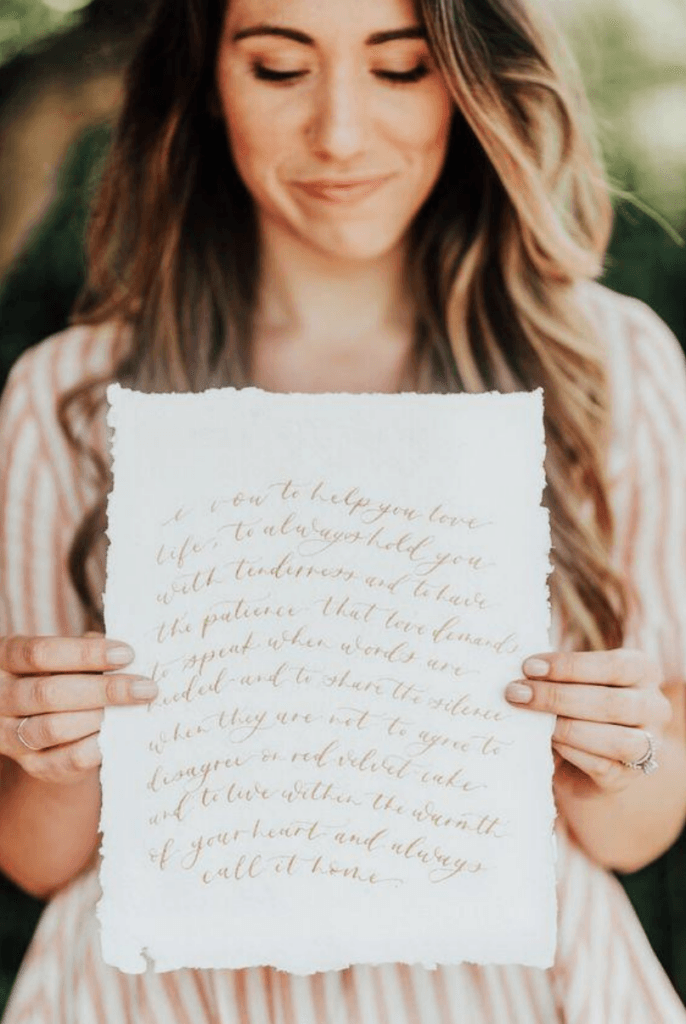 i vow to help you love
life, to always hold you
with tenderness and to have
the patience that love demands
to speak when words are
needed and to share the silence
when they are not to agree to
disagree on red velvet cake
and to live within the warmth
of your heart and always
call it home.